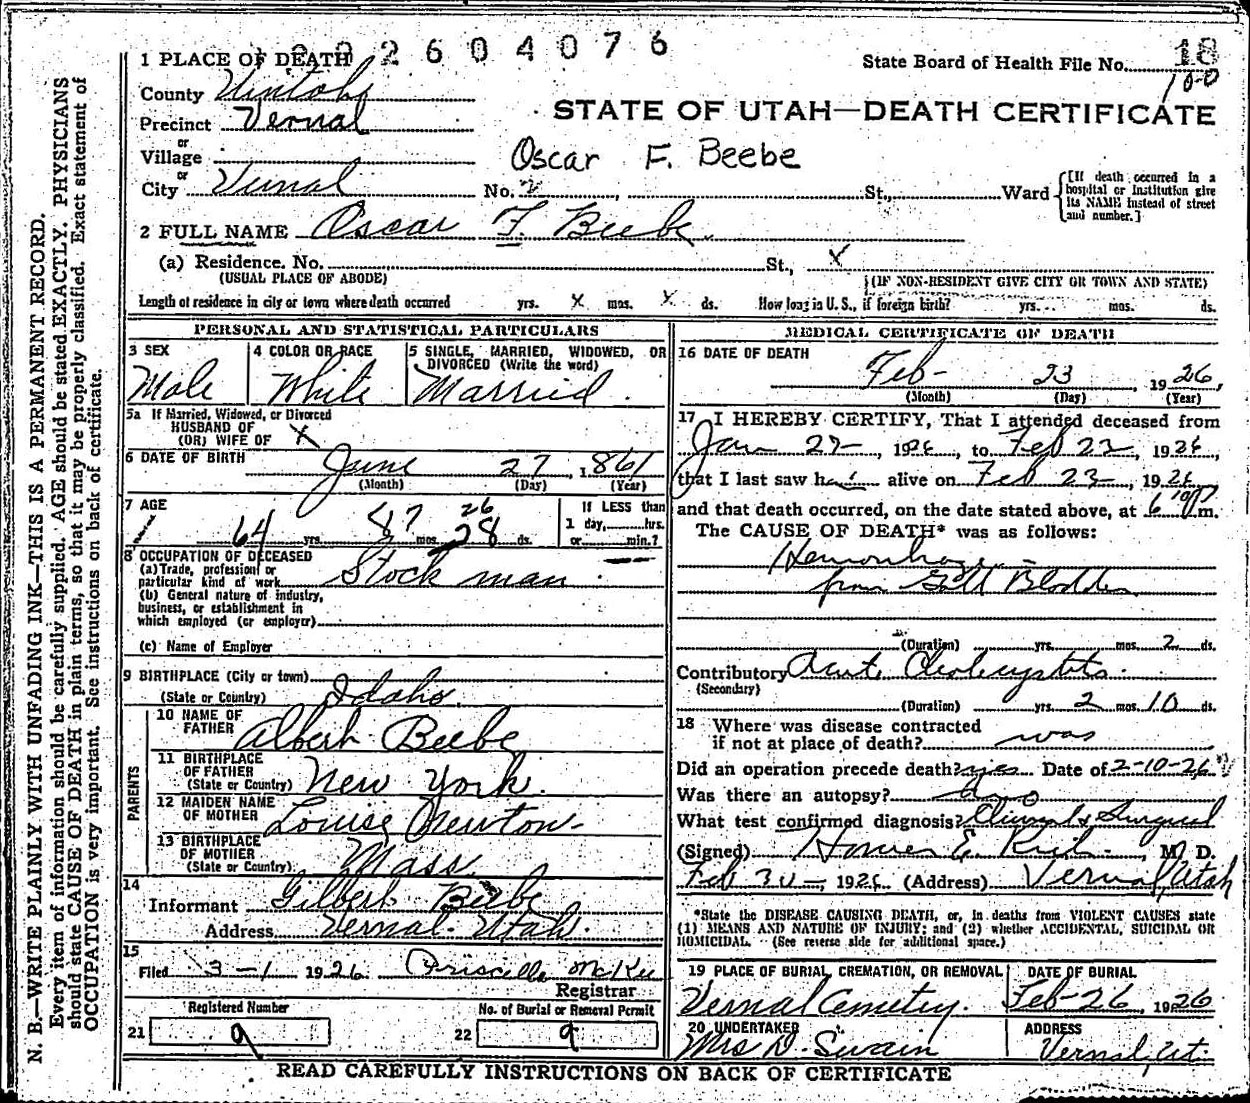 2604076
18
100
1 PLACE OF DEATH
State Board of Health File No.
County Uintah
STATE OF UTAH—DEATH CERTIFICATE
Precinct Vernal
or
Village
Oscar F. Beebe
or
City Vernal No. St., Ward
[If death occurred in a hospital or institution give its NAME instead of street and number.]
2 FULL NAME Oscar F. Beebe
(a) Residence. No. St., X
(USUAL PLACE OF ABODE) (IF NON-RESIDENT GIVE CITY OR TOWN AND STATE)
Length of residence in city or town where death occurred yrs. X mos. X ds. How long in U. S., if foreign birth? yrs. mos. ds.
PERSONAL AND STATISTICAL PARTICULARS
3 SEX
Male
4 COLOR OR RACE
White
5 SINGLE, MARRIED, WIDOWED, OR DIVORCED (Write the word)
Married
5a If Married, Widowed, or Divorced
HUSBAND OF
(OR) WIFE OF X
6 DATE OF BIRTH June 27, 1861
(Month) (Day) (Year)
7 AGE
64 yrs. 7 mos. 26 28 ds.
If LESS than
1 day, hrs.
or min.?
8 OCCUPATION OF DECEASED
(a) Trade, profession or
particular kind of work Stock man
(b) General nature of industry,
business, or establishment in
which employed (or employer)
(c) Name of Employer
9 BIRTHPLACE (City or town)
(State or Country) Idaho
PARENTS
10 NAME OF
FATHER Albert Beebe
11 BIRTHPLACE
OF FATHER
(State or Country) New York
12 MAIDEN NAME
OF MOTHER Louise Newton
13 BIRTHPLACE
OF MOTHER
(State or Country) Mass.
14
Informant Gilbert Beebe
Address Vernal Utah
15
Filed 3-1 1926 Priscilla McKee
Registrar
Registered Number
21 9
No. of Burial or Removal Permit
22 9
MEDICAL CERTIFICATE OF DEATH
16 DATE OF DEATH
Feb- 23, 1926,
(Month) (Day) (Year)
17 I HEREBY CERTIFY, That I attended deceased from
Jan 27-, 1926, to Feb 23, 1926
that I last saw him alive on Feb 23, 1926
and that death occurred, on the date stated above, at 6 m.
The CAUSE OF DEATH* was as follows:
Hemorrhage
from Gall Bladder
(Duration) yrs. mos. 2 ds.
Contributory Acute Cholecystitis.
(Secondary)
(Duration) yrs. 2 mos. 10 ds.
18 Where was disease contracted
if not at place of death? was
Did an operation precede death? yes Date of 2-10-26
Was there an autopsy? no
What test confirmed diagnosis? Clinical & Surgical
(Signed) Homer E. M. D.
Feb 1926 (Address) Vernal, Utah
*State the DISEASE CAUSING DEATH, or, in deaths from VIOLENT CAUSES state
(1) MEANS AND NATURE OF INJURY; and (2) whether ACCIDENTAL, SUICIDAL OR
HOMICIDAL. (See reverse side for additional space.)
19 PLACE OF BURIAL, CREMATION, OR REMOVAL
Vernal Cemetery.
DATE OF BURIAL
Feb-26 1926
20 UNDERTAKER
Mrs D. Swain
ADDRESS
Vernal, Ut.
READ CAREFULLY INSTRUCTIONS ON BACK OF CERTIFICATE
N. B.—WRITE PLAINLY WITH UNFADING INK—THIS IS A PERMANENT RECORD.
Every item of information should be carefully supplied. AGE should be stated EXACTLY. PHYSICIANS
should state CAUSE OF DEATH in plain terms, so that it may be properly classified. Exact statement of
OCCUPATION is very important. See instructions on back of certificate.